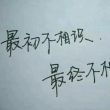 最初不相识、
最终不相